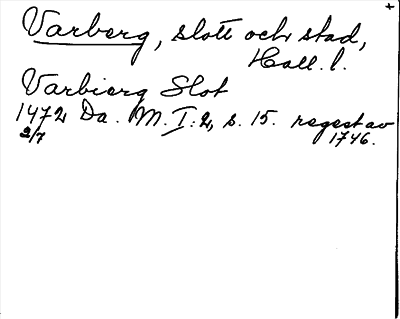 Varberg, slott och stad,
Hall. l.
Varbierg Slot
1472 Da. M. I:2, s. 15. regest av
2/7 1746.